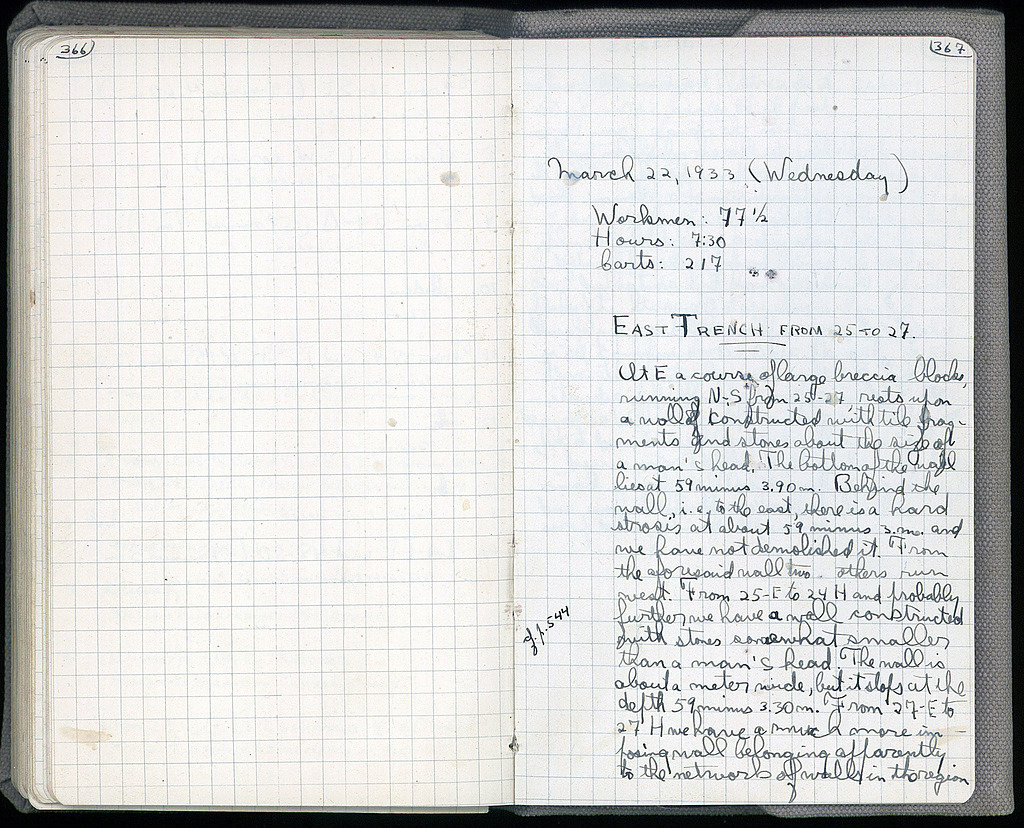 366
367
March 22, 1933 (Wednesday)
Workmen: 77 ½
Hours: 7:30
Carts: 217
EAST TRENCH FROM 25 TO 27.
At E a course of large breccia blocks,
running N-S from 25-27 rests upon
a wall constructed with tile frag-
ments and stones about the size of
a man's head. The bottom of the wall
lies at 59 minus 3.90 m. Behind the
wall, i.e. to the east, there is a hard
strosis at about 59 minus 3. m. and
we have not demolished it. From
the aforesaid wall two others run
west. From 25-E to 24 H and probably
further we have a wall constructed
with stones somewhat smaller
than a man's head. The wall is
about a meter wide, but it stops at the
depth 59 minus 3.30 m. From 27-E to
27 H we have a much more im-
posing wall belonging apparently
to the network of walls in the region
cf. p. 544